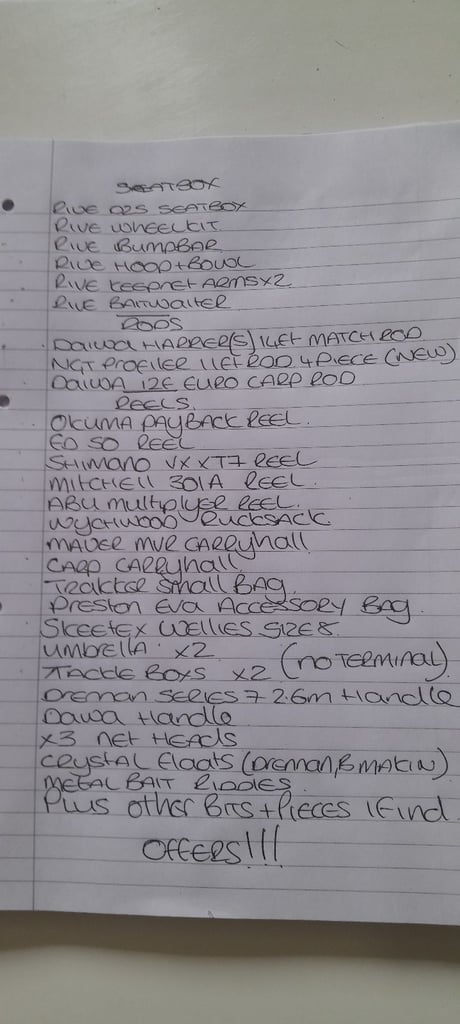 SEATBOX
RIVE D25 SEATBOX
RIVE WHEELKIT
RIVE BUMPBAR
RIVE HOOD+BOWL
RIVE KEEPNET ARMS X2
RIVE BAITWAITER
RODS
DAIWA HARRIER(S) 14FT MATCH ROD
NGT PROFILER 11FT ROD 4 PIECE (NEW)
DAIWA 12F EURO CARP ROD
REELS
OKUMA PAYBACK REEL.
EO 50 REEL
SHIMANO VX XT7 REEL
MITCHELL 301A REEL
ABU MULTIPLYER REEL.
WYCHWOOD RUCKSACK
MAVER MVR CARRYHALL
CARP CARRYHALL
TRAKKER SMALL BAG
PRESTON EVA ACCESSORY BAG.
SKEETEX WELLIES SIZE 8.
UMBRELLA X2
TACKLE BOXS X2 (NO TERMINAL)
DRENNAN SERIES 7 2.6m HANDLE
DAWA HANDLE
X3 NET HEADS
CRYSTAL FLOATS (DRENNAN, B MAKIN)
METAL BAIT RIDDLES
PLUS OTHER BITS + PIECES I FIND
OFFERS!!!